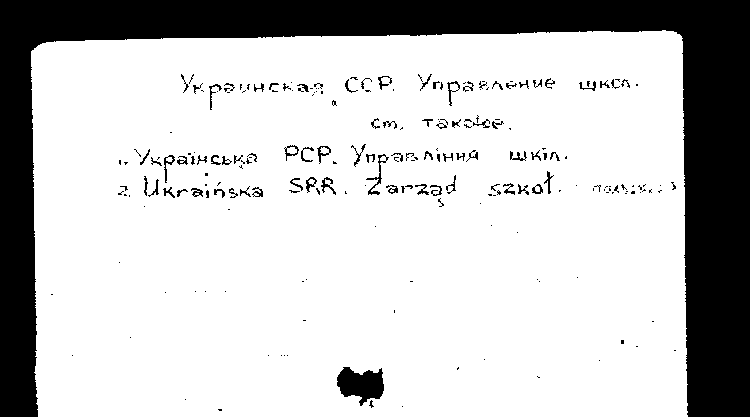 Украинская ССР. Управление школ.
см. также.
1. Українська РСР. Управління шкіл.
2. Ukraińska SRR. Zarząd szkoł.